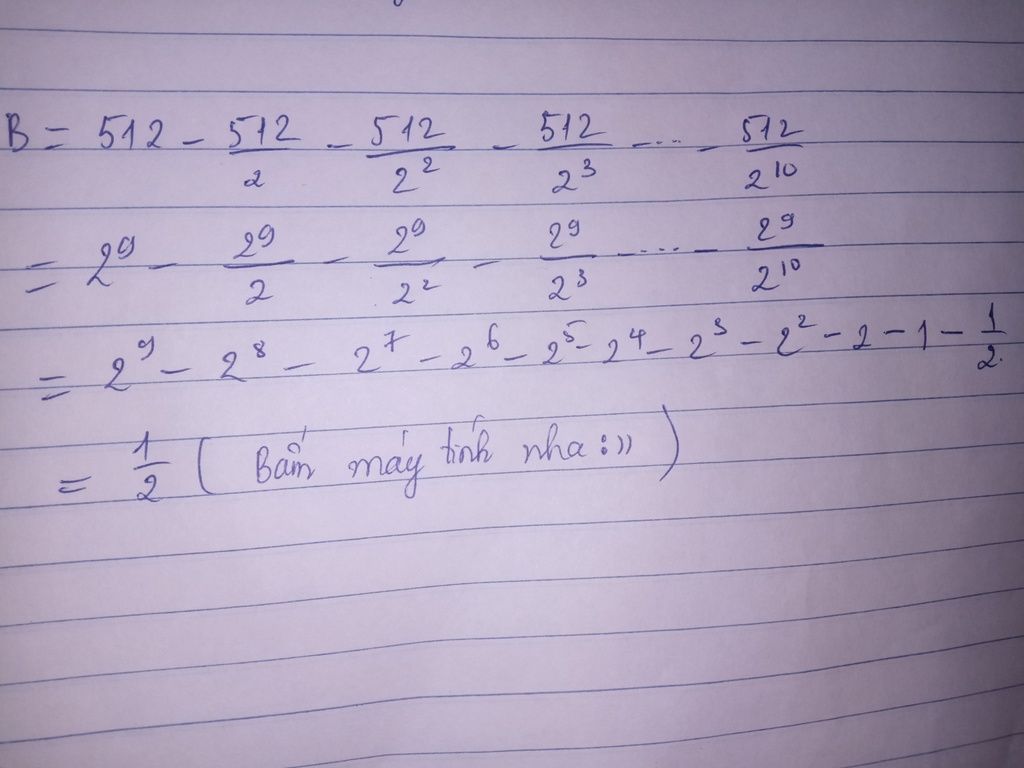 B = 512 - 512/2 - 512/2² - 512/2³ - ... - 512/2¹⁰
= 2⁹ - 2⁹/2 - 2⁹/2² - 2⁹/2³ - ... - 2⁹/2¹⁰
= 2⁹ - 2⁸ - 2⁷ - 2⁶ - 2⁵ - 2⁴ - 2³ - 2² - 2 - 1 - 1/2.
= 1/2 ( Bấm máy tính nha :)) )